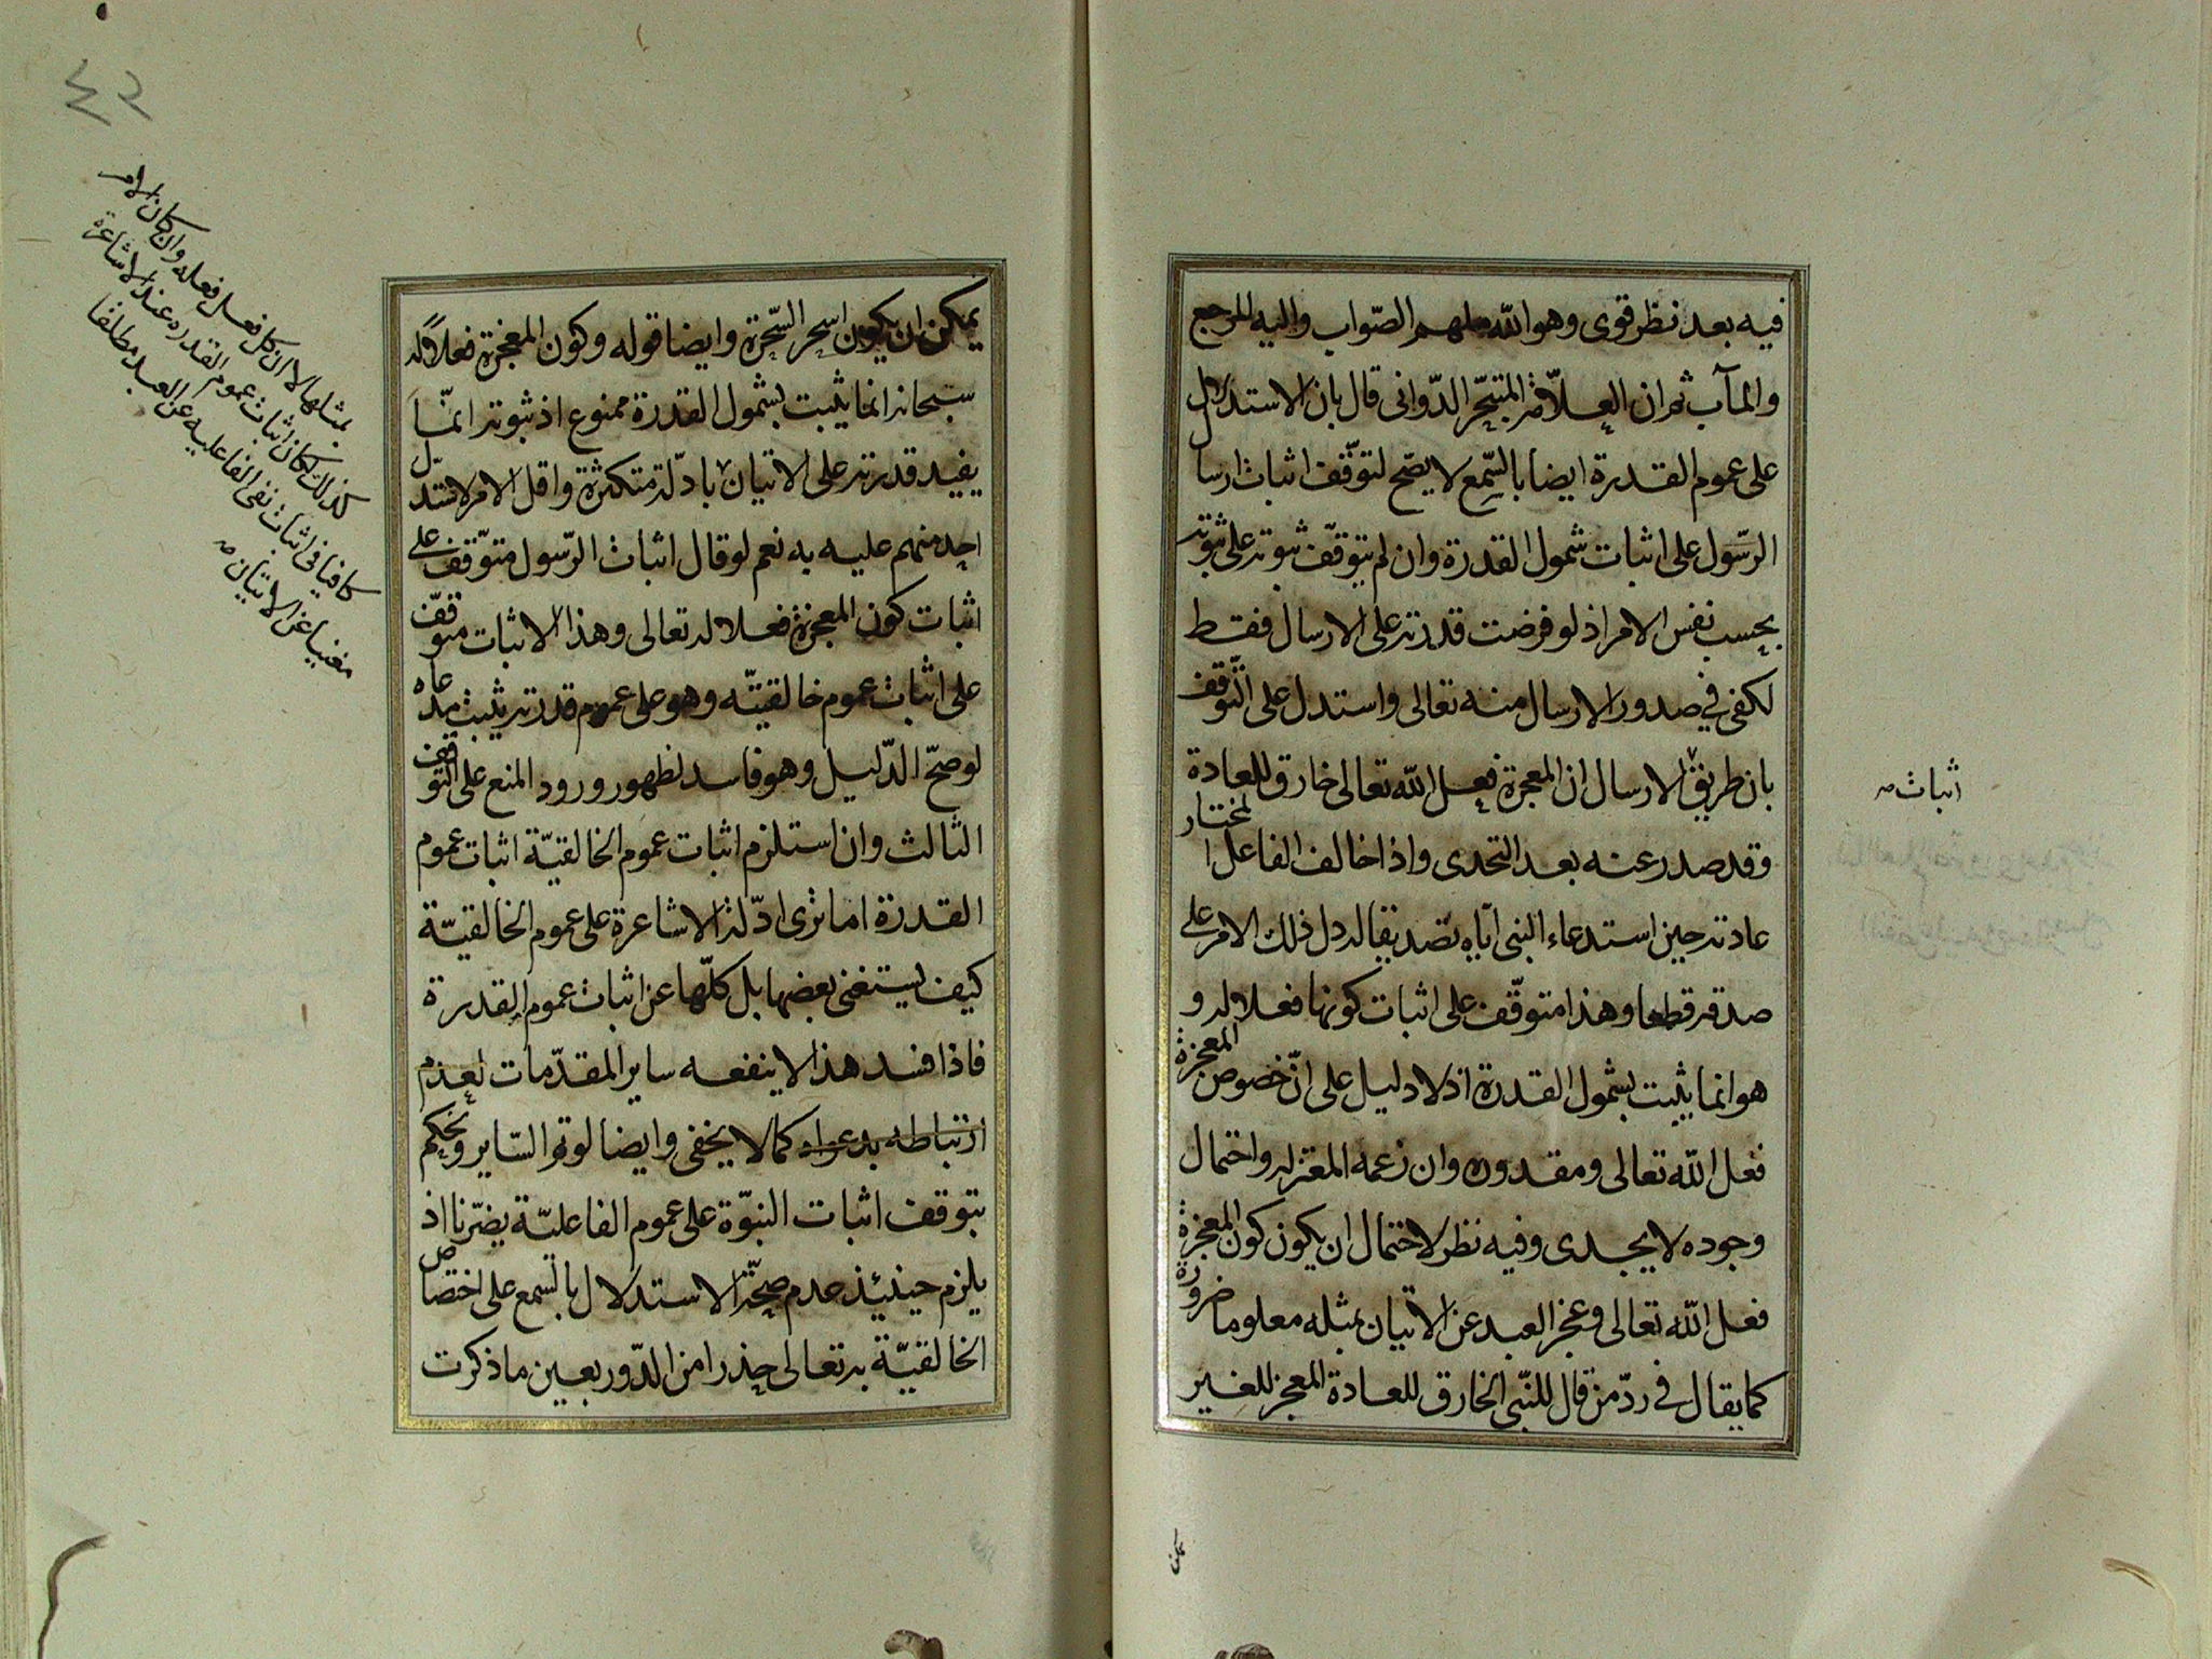 فيه بعد نظر قوى وهو الله ملهم الصّواب واليه المرجع
والمآب ثم ان العلّامة المتبحّر الدّوانى قال بان الاستدلال
على عموم القدرة ايضا بالسّمع لا يصّح لتوقّف اثبات ارسال
الرّسول على اثبات شمول القدرة وان لم يتوقّف ثبوته على ثبوته
بحسب نفس الامر اذ لو فرضت قدرته على الارسال فقط
لكفى فى صدور الارسال منه تعالى واستدل على التّوقف
بان طريق الارسال ان المعجزة فعل الله تعالى خارق للعادة
اثبات صه
وقد صدر عنه بعد التحدى واذا خالف الفاعل المختار
عادته حين استدعاء النبى ايّاه تصديقا له دل ذلك الامر على
صدقه قطعا وهذا متوقّف على اثبات كونها فعلا له و
هو انما يثبت بشمول القدرة اذ لا دليل على انّ خصوص المعجزة
فعل الله تعالى ومقدوره وان زعمه المعتزله واحتمال
وجوده لا يجدى وفيه نظر لاحتمال ان يكون كون المعجزة
فعل الله تعالى وعجز العبد عن الاتيان بمثله معلوما ضرورة
كما يقال فى ردّ من قال للنّبى الخارق للعادة المعجز للغير
يمكن
٤٢
يمكن ان يكون اسحر السّحرة وايضا قوله وكون المعجزة فعلا له
سبحانه انما يثبت بشمول القدرة ممنوع اذ ثبوته انمّا
يفيد قدرته على الاتيان بادلّة متكثرة واقل الامر لا تستدلّ
احد منهم عليه به نعم لو قال اثبات الرّسول متوّقف على
اثبات كون المعجزة فعلا له تعالى وهذا الاثبات متوقّف
على اثبات عموم خالقيتّه وهو على عموم قدرته يثبت مدعاه
لو صحّ الدّليل وهو فاسد لظهور ورود المنع على التوقف
الثالث وان استلزم اثبات عموم الخالقيّة اثبات عموم
القدرة اما ترى ادّلة الاشاعرة على عموم الخالقيّة
كيف يستغنى بعضها بل كلّها عن اثبات عموم القدرة
فاذا فسد هذا لا ينفعه ساير المقدّمات لعدم
ارتباطه بدعواه كما لا يخفى وايضا لو تم السّاير ونحكم
بتوقف اثبات النبوّة على عموم الفاعليّة يضرّنا اذ
يلزم حينئذ عدم صحّة الاستدلال بالسّمع على اختصاص
الخالقيّة به تعالى حذرا من الدّور بعين ما ذكرت
بمثلها الا ان كل فعل فعله وان كان الامر
كذلك لكان اثبات عموم القدره عند الاشاعرة
كافيا فى اثبات نفى الفاعليه عن العبد مطلقا
مغنيا عن الاتيان صه